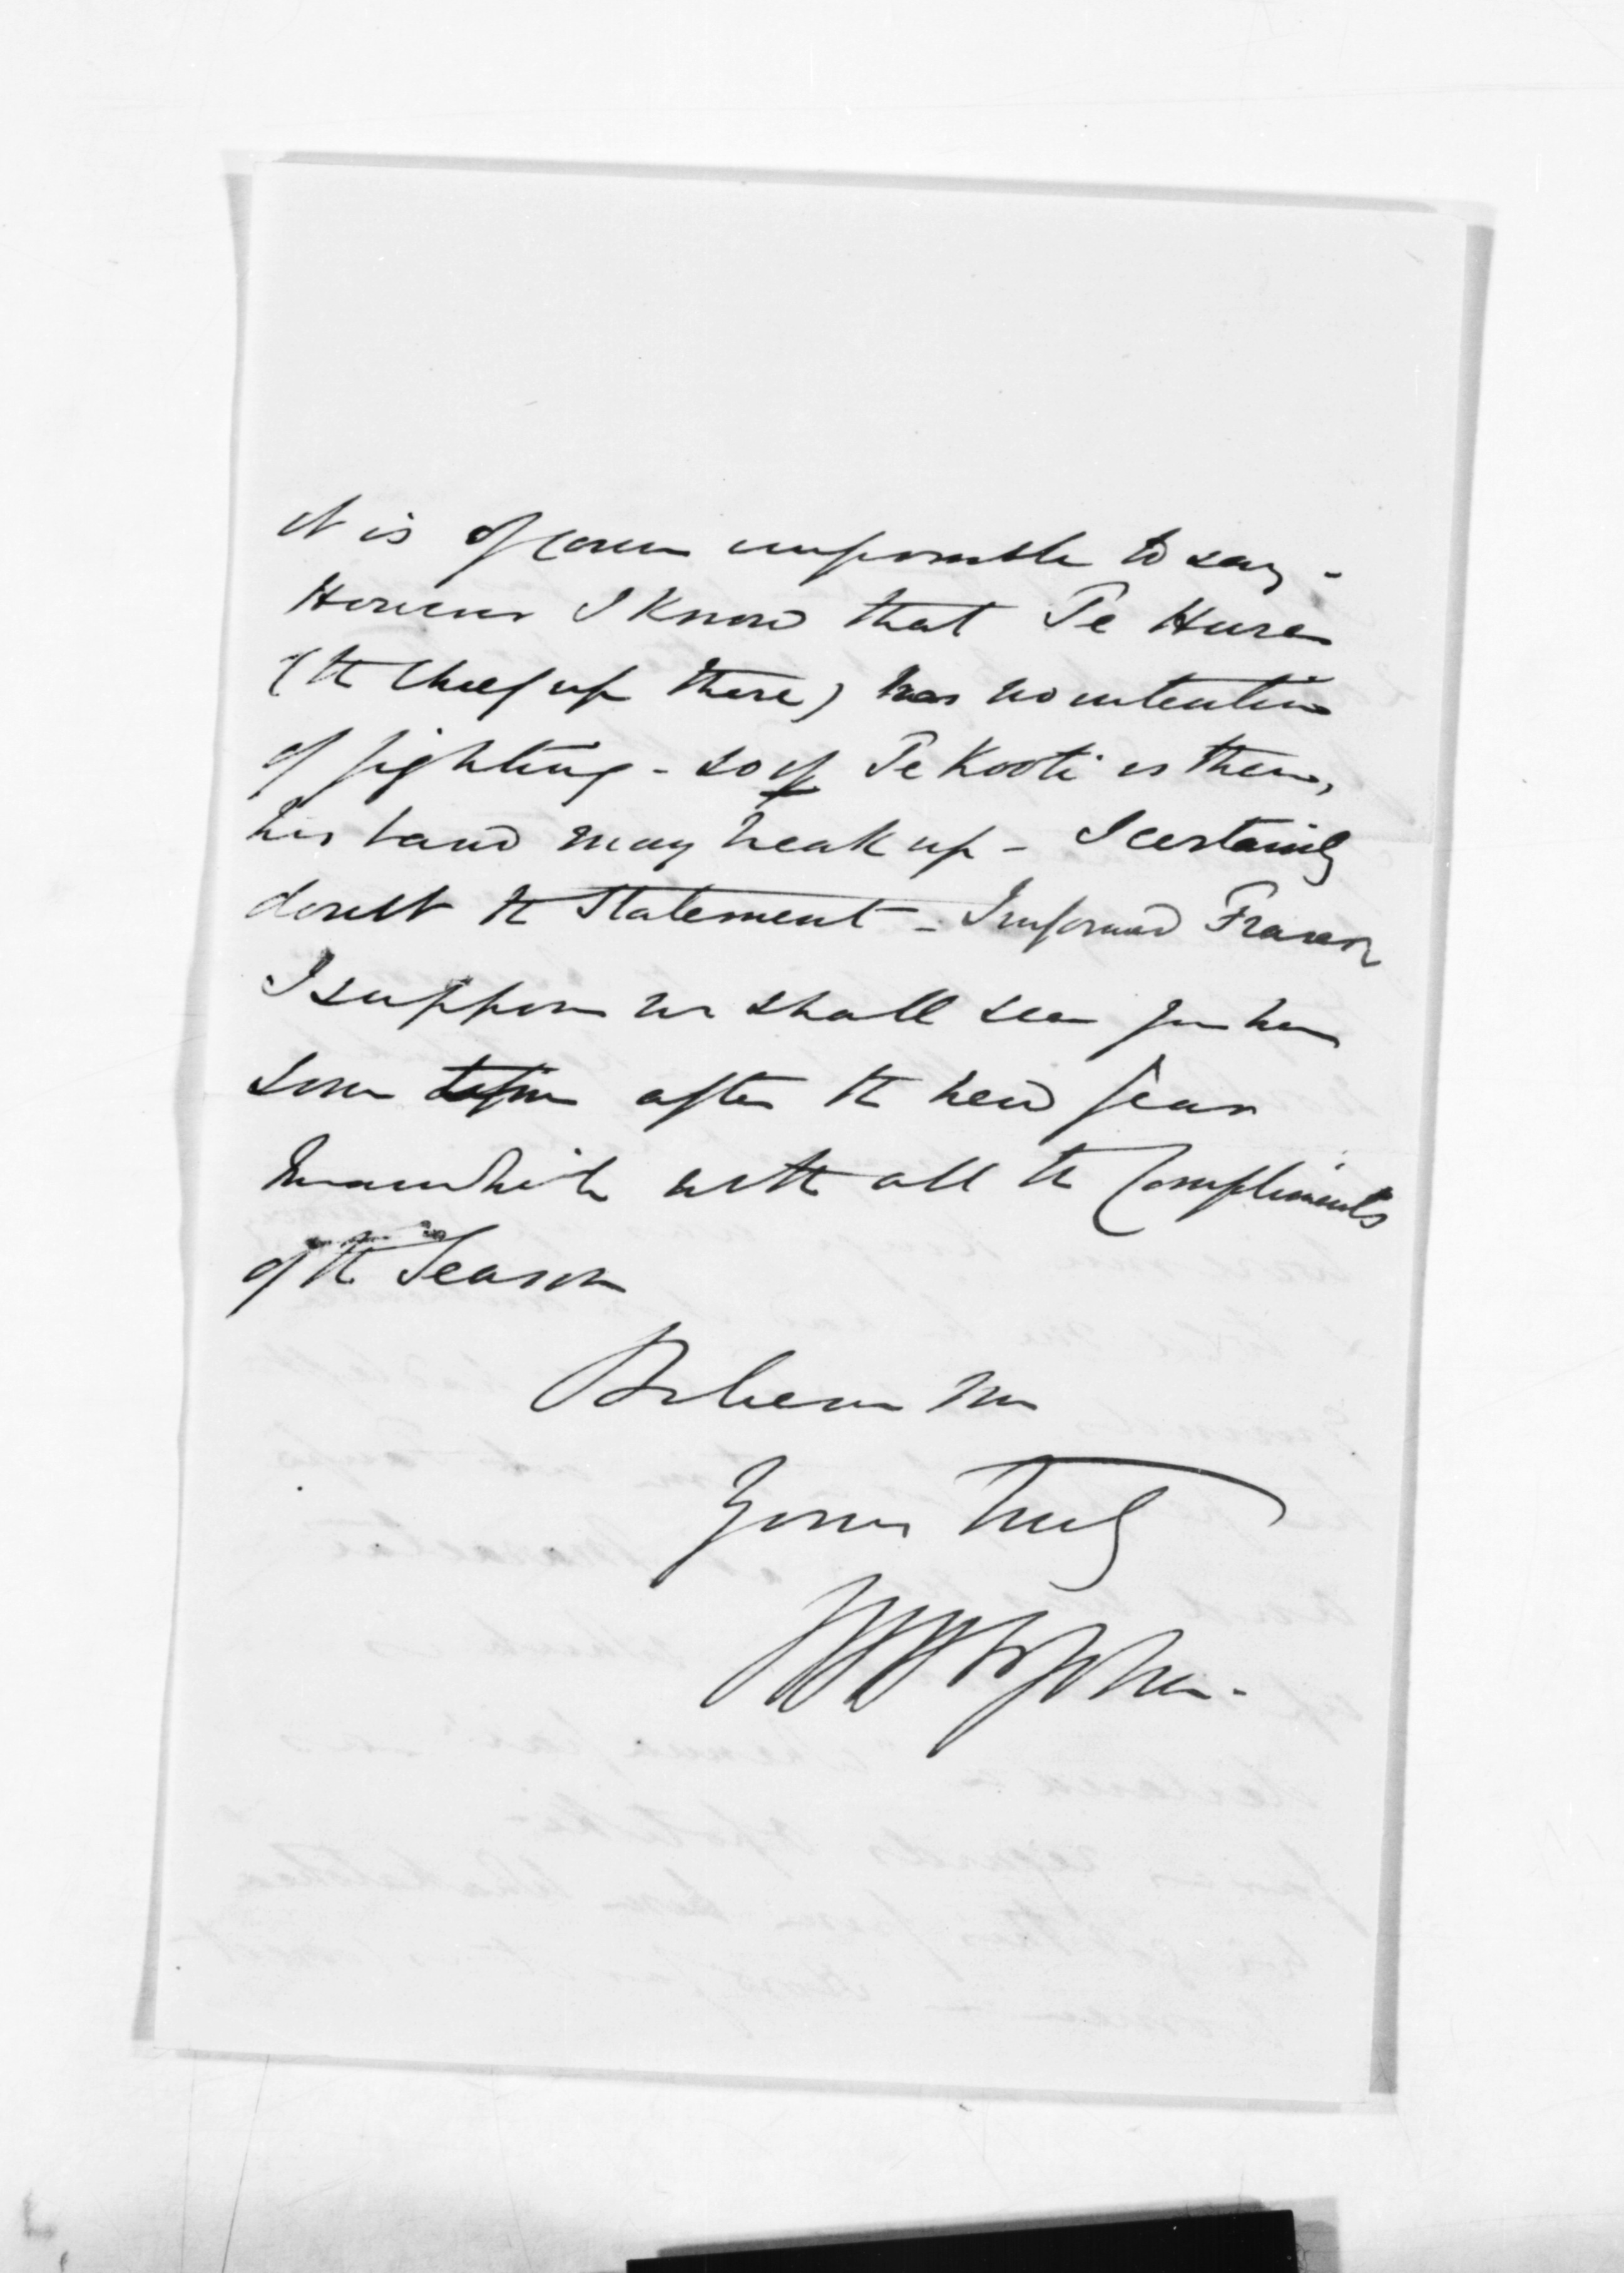 it is of course impossible to say -
However I know that Te Hura
(the Chief up there) has no intention
of fighting - so if Te Kooti is there,
his band may break up - I certainly
doubt the statement - I informed Fraser
I suppose we shall see you here
some time after the new year
Meanwhile with all the Compliments
of the Season
Believe me
Yours truly